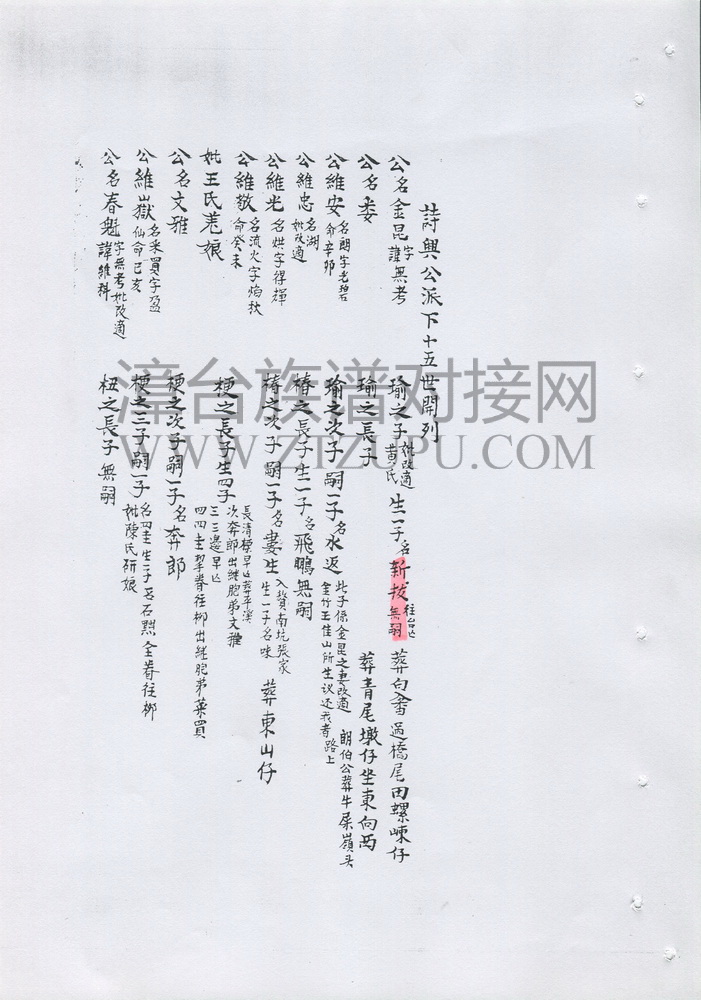 詩興公派下十五世開列
公名金昆字諱無考 瑜之子 妣改適黄氏 生一子名新拔 往台亡無嗣 葬白番過橋尾田螺崠仔
公名委 瑜之長子 葬青尾墩仔坐東向西
公維安 名朗字老碧 命辛卯 瑜之次子嗣一子名水返 此子係金昆之妻改適金竹王佳山所生议还我者路上 朗伯公葬牛屎嶺头
公維忠 名湖 妣改適 椿之長子生一子名飛鵬無嗣
公維光 名烘字得輝 椿之次子嗣一子名妻生 入贅南坑張家 生一子名味 葬東山仔
公維敬 名流火字焰秋 命癸未 梗之長子生四子 長清標早亡葬平溪 次奔郎出継胞弟文雅 三三邊早亡 四四圭挈眷往梆出継胞弟菜買
妣王氏羗娘
公名文雅 梗之次子嗣一子名奔郎
公維嶽 名采買字及盈 仙命己亥 梗之三子嗣一子 名四圭生二子名石烈全眷往梆 妣陳氏研娘
公名春魁 字無考妣改適 諱維科 杻之長子無嗣
漳台族谱对接网
WWW.ZTZUPU.COM